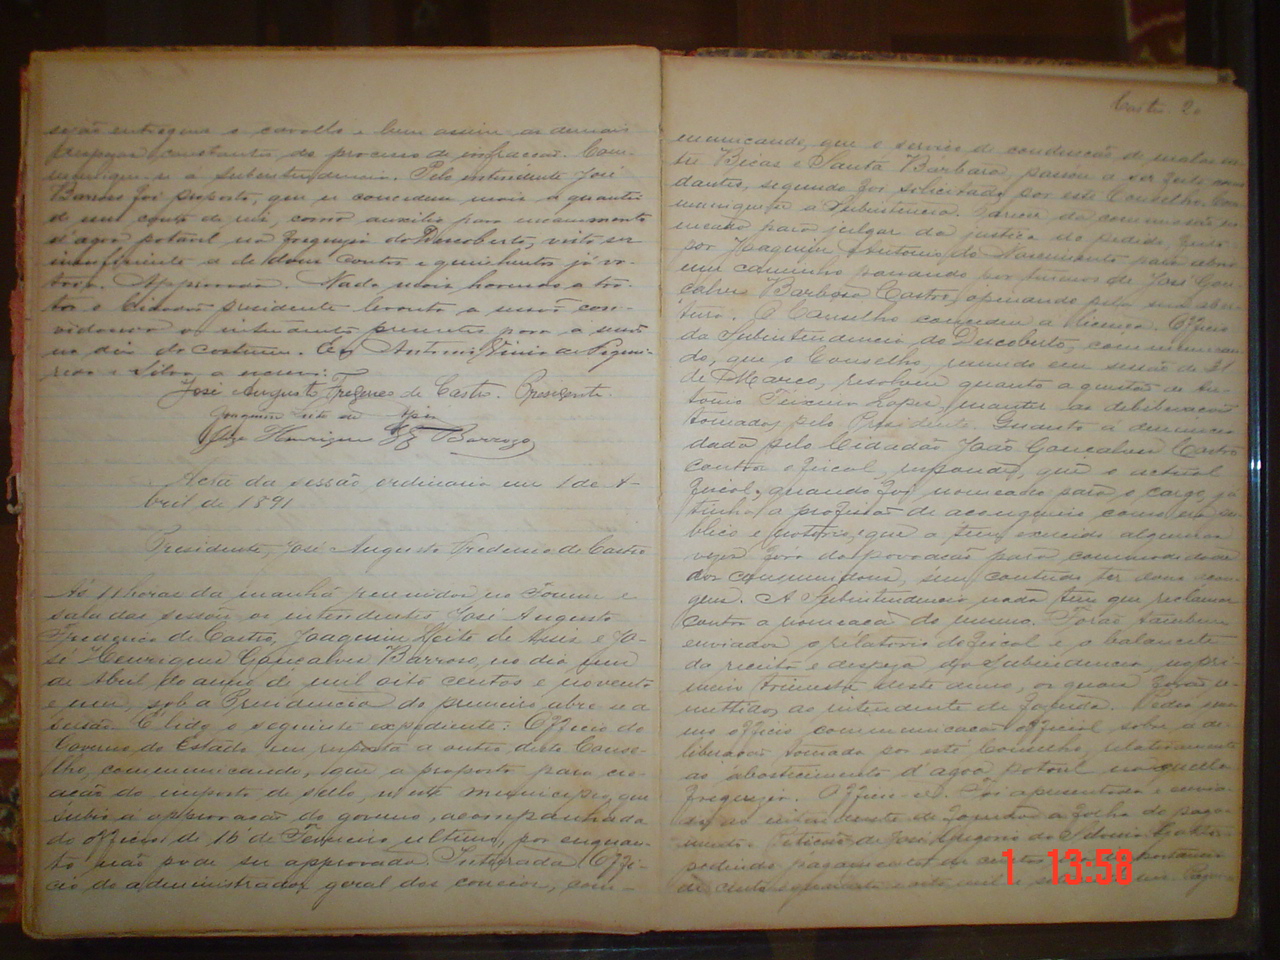 sejão entregues o cavallo e bem assim as demais
peças constantes do processo de infracção. Com-
munique-se á subintendencia. Pelo intendente José
Barroso foi proposto, que se concedesse mais a quantia
de um conto de reis, como auxilio para encanamento
d'agoa potavel na freguezia do Descoberto, visto ser
insufficiente a de dous contos e quinhentos já vo-
tada. Approvada. Nada mais havendo a tra-
tar o Cidadão presidente levanta a sessão con-
vidando os intendentes presentes para a sessão
no dia do costume. Eu Antonio de Figuei-
redo e Silva, a escrevi.
José Augusto Frederico de Castro. Presidente.
Joaquim Leite de Assis
José Henriques Glz Barrozo
Acta da sessão ordinaria em 1 de A-
bril de 1891
Presidente, José Augusto Frederico de Castro
Ás 11 horas da manhã reunidos no Fórum e
sala das sessões os intendentes José Augusto
Frederico de Castro, Joaquim Leite de Assis e Jo-
sé Henriques Gonçalves Barroso, no dia um
de Abril do anno de mil oito centos e noventa
e um, sob a Presidencia do primeiro abre-se a
sessão. É lido o seguinte expediente: Officio do
Governo do Estado em resposta a outro deste Conse-
lho, communicando, que a proposta para cre-
ação do imposto de sello, neste municipio, que
subio á approvação do governo, acompanhada
do officio de 16 de Fevereiro ultimo, por enquan-
to não pode ser approvada. Inteirada. Offi-
cio do administrador geral dos correios, com-
Castro 20
municando, que o serviço de conducção de malas en-
tre Bicas e Santa Barbara, passou a ser feito
segundo foi solicitado por este Conselho. Com-
munique-se a Subintendencia. Parecer da commissão no-
meada para julgar da justiça do pedido, feito
por Joaquim Antonio do Nascimento para abrir
um caminho passando por terrenos de José Gon-
çalves Barbosa Castro, opinando pela sua aber-
tura. O Conselho concedeu a licença. Officio
da Subintendencia do Descoberto, communican-
do, que o Conselho, reunido em sessão de 21
de Março, resolveu quanto a questão de An-
tonio Teixeira Lopes, manter as deliberações
tomadas pelo Presidente. Quanto á denuncia
dada pelo Cidadão João Gonçalves Castro
contra o fiscal, responde, que o actual
fiscal, quando foi nomeado para o cargo, já
tinha a profissão de açougueiro como era pu-
blico e notorio, que a tem exercido algumas
vezes fóra da povoação para commodidade
dos consumidores, sem comtudo ter
A Subintendencia nada tem que reclamar
contra a nomeação do mesmo. Forão tambem
enviados o relatorio do fiscal e o balancete
da receita e despeza da Subintendencia, no pri-
meiro trimestre deste anno, os quaes forão re-
mettidos ao intendente de fazenda. Pedio
officio communicação official sobre a de-
liberação tomada por este Conselho, relativamente
ao abastecimento d'agoa potavel naquella
freguezia. Officie-se. Foi apresentada e envia-
da ao intendente de fazenda a folha de paga-
mento. Petição de José
pedindo pagamento
1 13:58